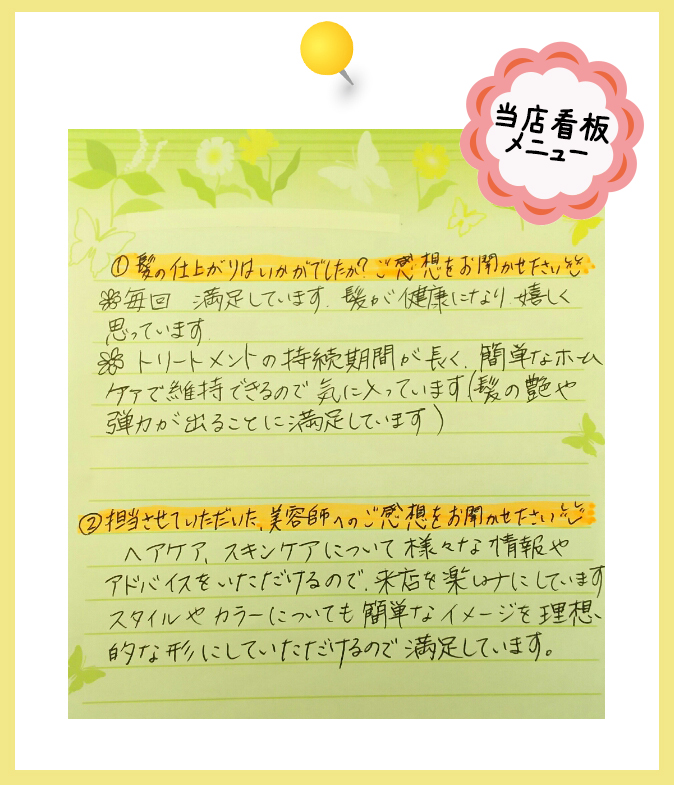 当店看板
メニュー
①髪の仕上がりはいかがでしたか？ご感想をお聞かせ下さい
毎回 満足しています。髪が健康になり嬉しく
思っています。
トリートメントの持続期間が長く、簡単なホーム
ケアで維持できるので気に入っています(髪の艶や
弾力が出ることに満足しています)
②担当させていただいた、美容師へのご感想をお聞かせ下さい
ヘアケア、スキンケアについて様々な情報や
アドバイスをいただけるので、来店を楽しみにしています
スタイルやカラーについても簡単なイメージを理想、
的な形にしていただけるので満足しています。